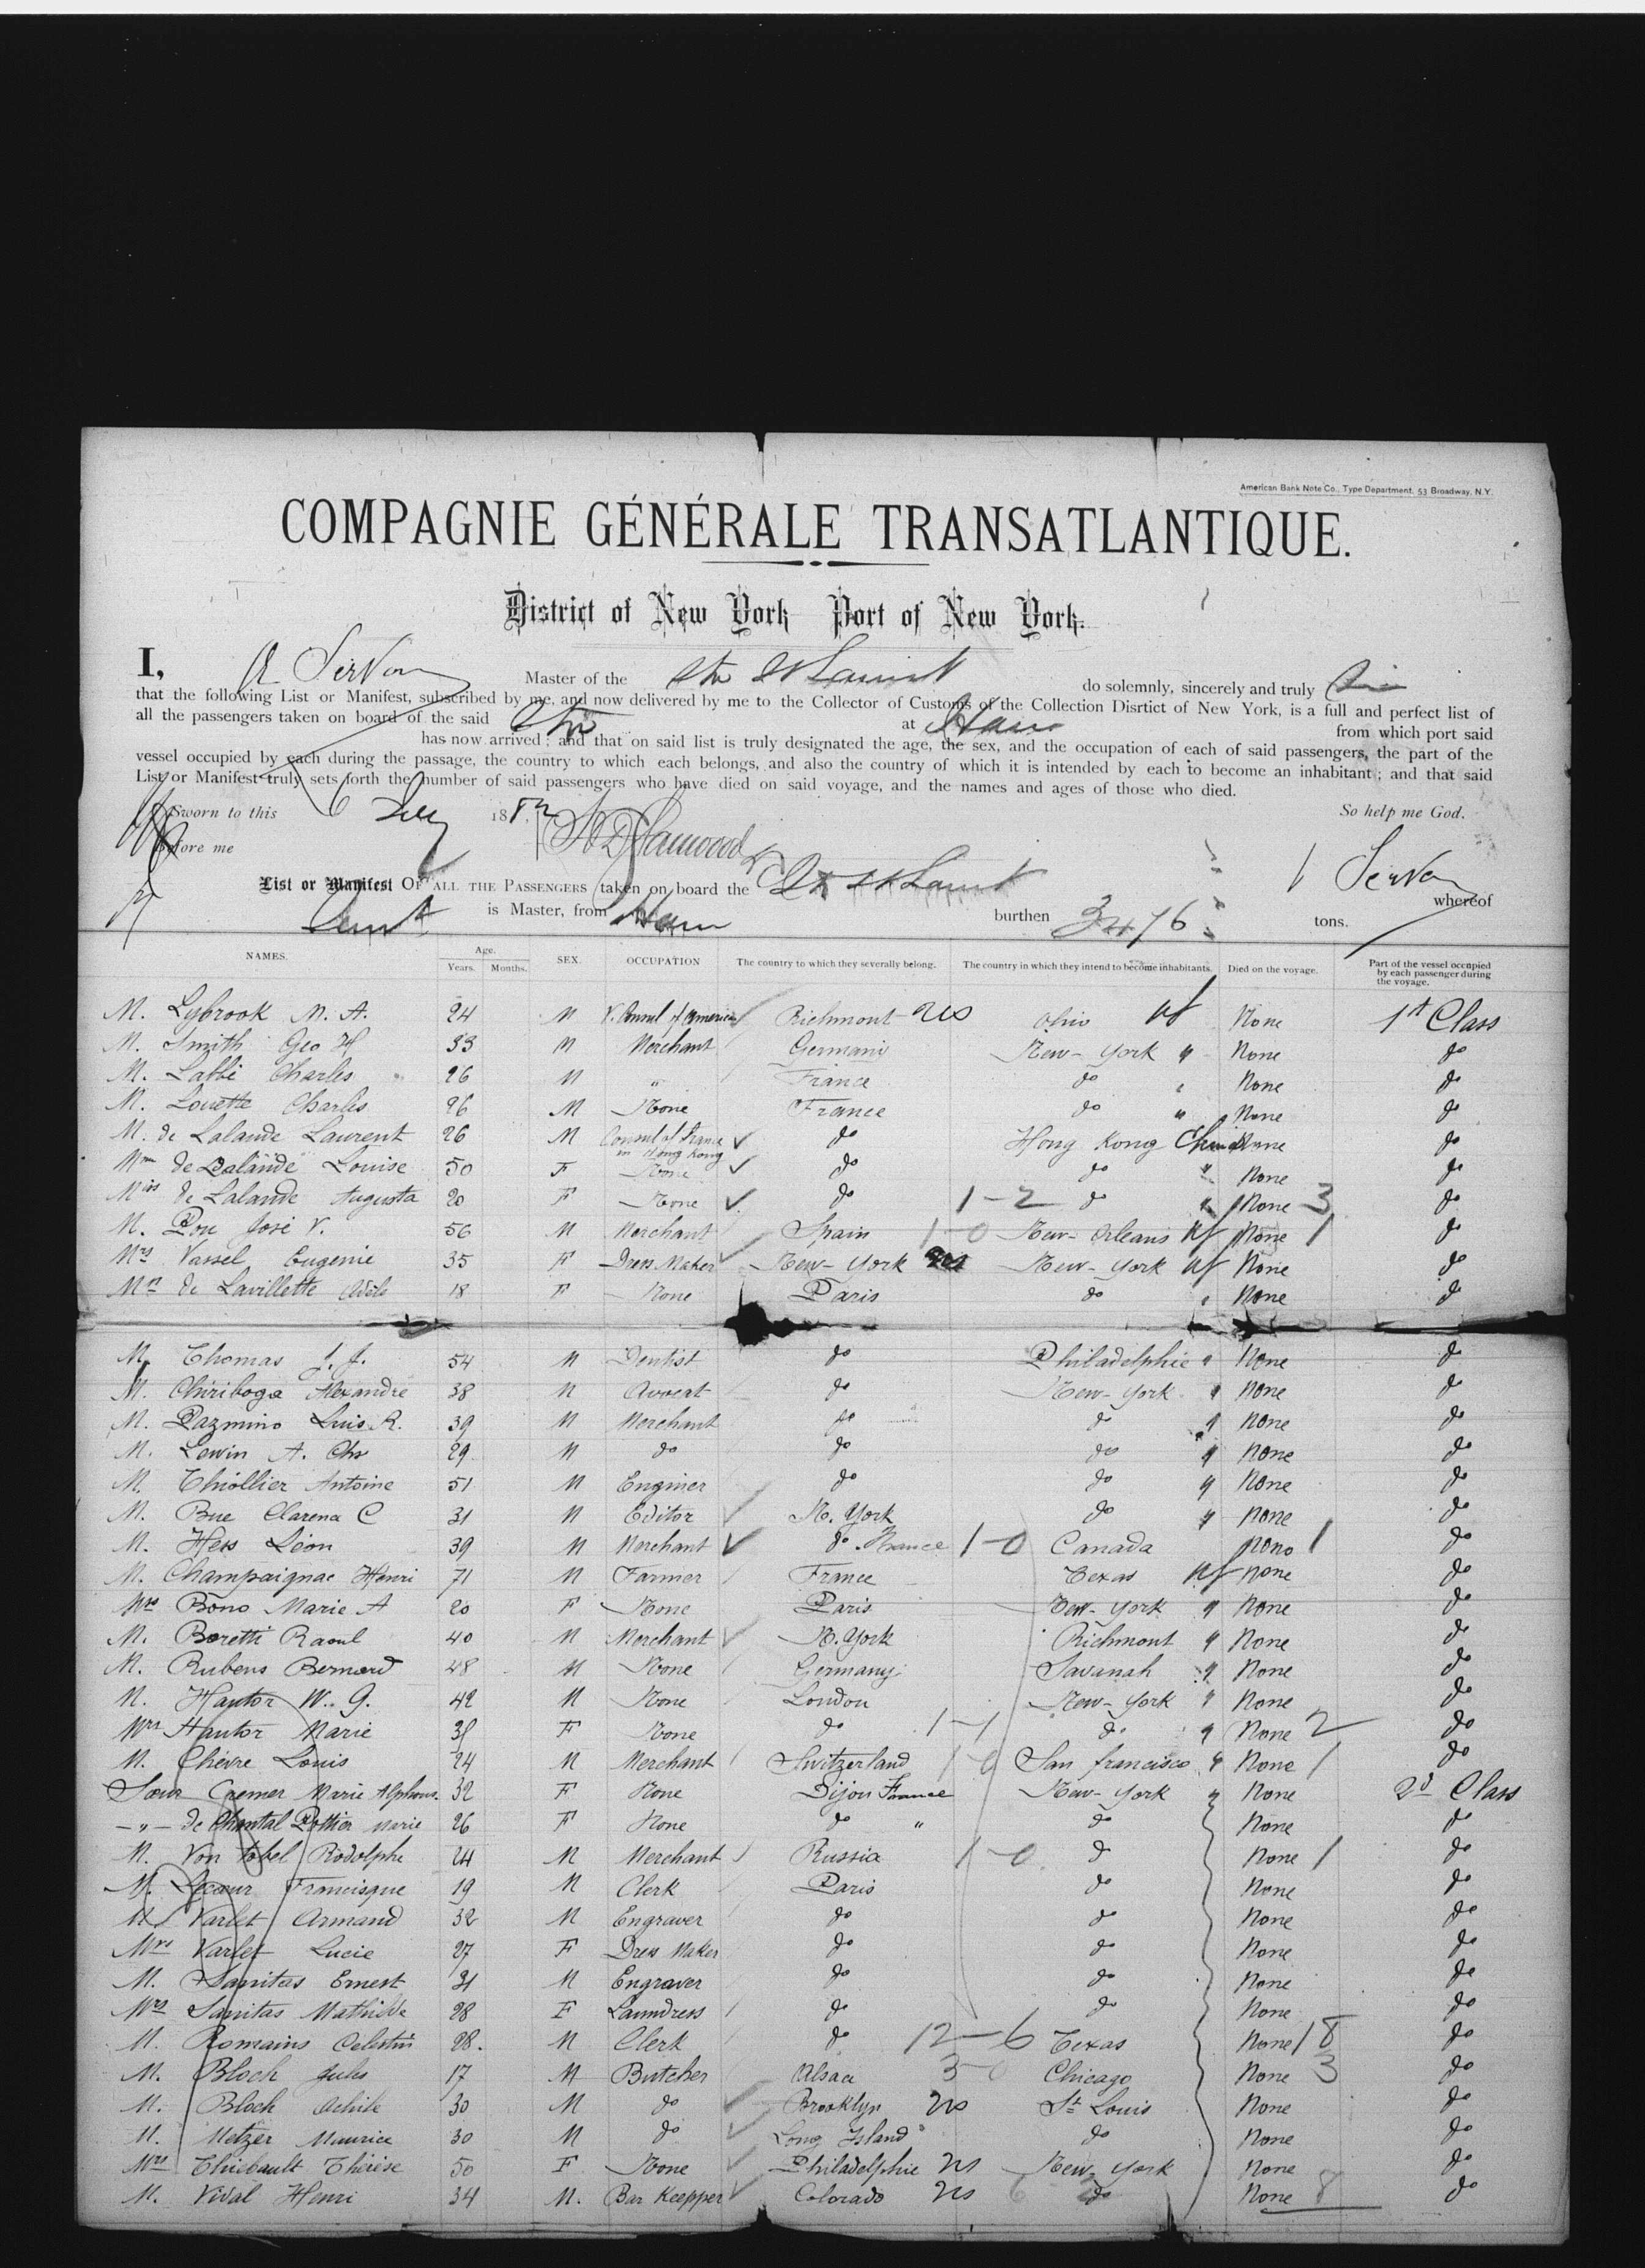 American Bank Note Co., Type Department, 53 Broadway, N.Y.
COMPAGNIE GÉNÉRALE TRANSATLANTIQUE.
District of New York Port of New York.
I, A Servan Master of the Str St Laurent do solemnly, sincerely and truly
that the following List or Manifest, subscribed by me, and now delivered by me to the Collector of Customs of the Collection Disrtict of New York, is a full and perfect list of
all the passengers taken on board of the said Str at Havre from which port said
has now arrived; and that on said list is truly designated the age, the sex, and the occupation of each of said passengers, the part of the
vessel occupied by each during the passage, the country to which each belongs, and also the country of which it is intended by each to become an inhabitant; and that said
List or Manifest truly sets forth the number of said passengers who have died on said voyage, and the names and ages of those who died.
Sworn to this 6 188 So help me God.
before me
List or Manifest OF ALL THE PASSENGERS taken on board the St Laurent Servan whereof
is Master, from Havre burthen 3476 tons.
NAMES. Age. Years. Months. SEX. OCCUPATION The country to which they severally belong. The country in which they intend to become inhabitants. Died on the voyage. Part of the vessel occupied by each passenger during the voyage.
M. Lybrook M. A. 24 M V. Consul of America Richmont Ohio None 1st Class
M. Smith Geo H 33 M Merchant Germani New-York " None do
M. Labbé Charles 26 M " France do " None do
M. Louette Charles 26 M None France do " None do
M. de Lalande Laurent 26 M Consul of France in Hong Kong do Hong Kong China None do
Mme de Lalande Louise 50 F None do do " None do
Miss de Lalande Augusta 20 F None do 1-2 do " None 3 do
M. Pou José V. 56 M Merchant Spain 1-0 New-Orleans None 1 do
Mrs Vassel Eugenie 35 F Dress Maker New-York New-York None do
de Lavillette Adèle 18 F None Paris do " None do
M. Thomas J. J. 54 M Dentist do Philadelphie " None do
M. Chiriboga Alexandre 38 M Avocat do New-York " None do
M. Pazmino Luis R. 39 M Merchant do do " None do
M. Lewin A. Chs 29 M do do do " None do
M. Thiollier Antoine 51 M Enginer do do " None do
M. Bue Clarena C 31 M Editor N. York do " None do
M. Hess Léon 39 M Merchant do France 1-0 Canada None 1 do
M. Champaignac Henri 71 M Farmer France Texas None do
Mrs Bono Marie A 20 F None Paris New-York " None do
M. Boretti Raoul 40 M Merchant N. York Richmont " None do
M. Rubens Bernard 48 M None Germany Savanah " None do
M. Hantor W. G. 42 M None London New-York " None do
Mrs Hantor Marie F None do 1-1 do " None 2 do
M. Chièvre Louis 24 M Merchant Switzerland 1-0 San francisco " None 1 do
Soeur Cremer Marie Alphons. 32 F None Dijon France New-York " None 2d Class
-"- de Chantal Pottier Marie 26 F None do " do None do
M. Von Tobel Rodolphe 24 M Merchant Russia 1-0 do None 1 do
M. Lecoeur Francisque 19 M Clerk Paris do None do
M. Varlet Armand 32 M Engraver do do None do
Mrs Varlet Lucie 27 F Dress Maker do do None do
M. Sanitas Ernest 31 M Engraver do do None do
Mrs Sanitas Mathilde 28 F Laundress do do None do
M. Romains Celestin 28. M Clerk do 12-6 Texas None 18 do
M. Bloch Jules 17 M Butcher Alsace 3-0 Chicago None 3 do
M. Bloch Achile 30 M do Brooklyn St Louis None do
M. Metzer Maurice 30 M do Long Island do None do
Mrs Thiebault Thérèse 50 F None Philadelphie New-York None do
M. Vidal Henri 34 M. Bar Keepper Colorado do None 8 do